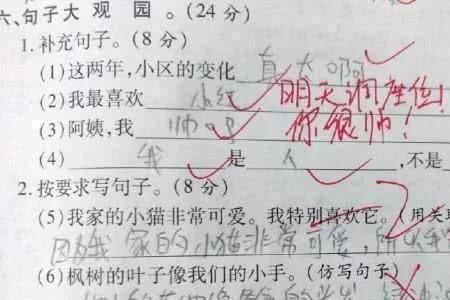 六、句子大观园。(24分)
1.补充句子。(8分)
(1)这两年,小区的变化 真大啊
(2)我最喜欢 小红 明天调座位!
(3)阿姨,我 帅吗 你很帅!
(4) 我 是 人 ,不是
2.按要求写句子。(8分)
(5)我家的小猫非常可爱。我特别喜欢它。(用关联
因为我家的小猫非常可爱,所以我
(6)枫树的叶子像我们的小手。(仿写句子)